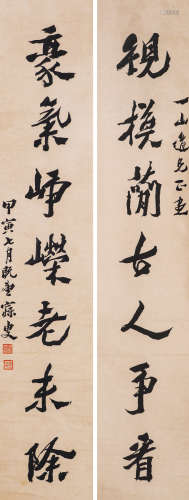 一山道兄正書
規模簡古人爭看
豪氣崢嶸老未除
甲寅七月既望寐叟